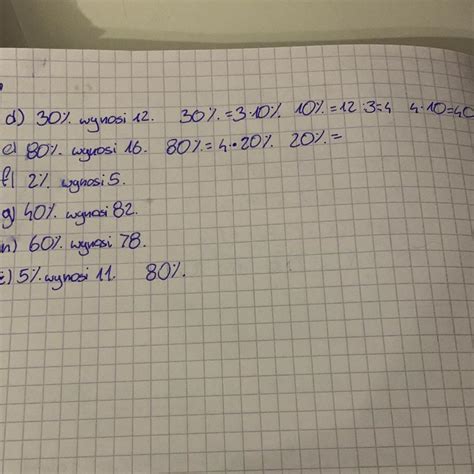 d) 30% wynosi 12. 30% = 3·10% 10% = 12:3=4 4·10=40
e) 80% wynosi 16. 80% = 4·20% 20% =
f) 2% wynosi 5.
g) 40% wynosi 82.
h) 60% wynosi 78.
i) 5% wynosi 11. 80%.